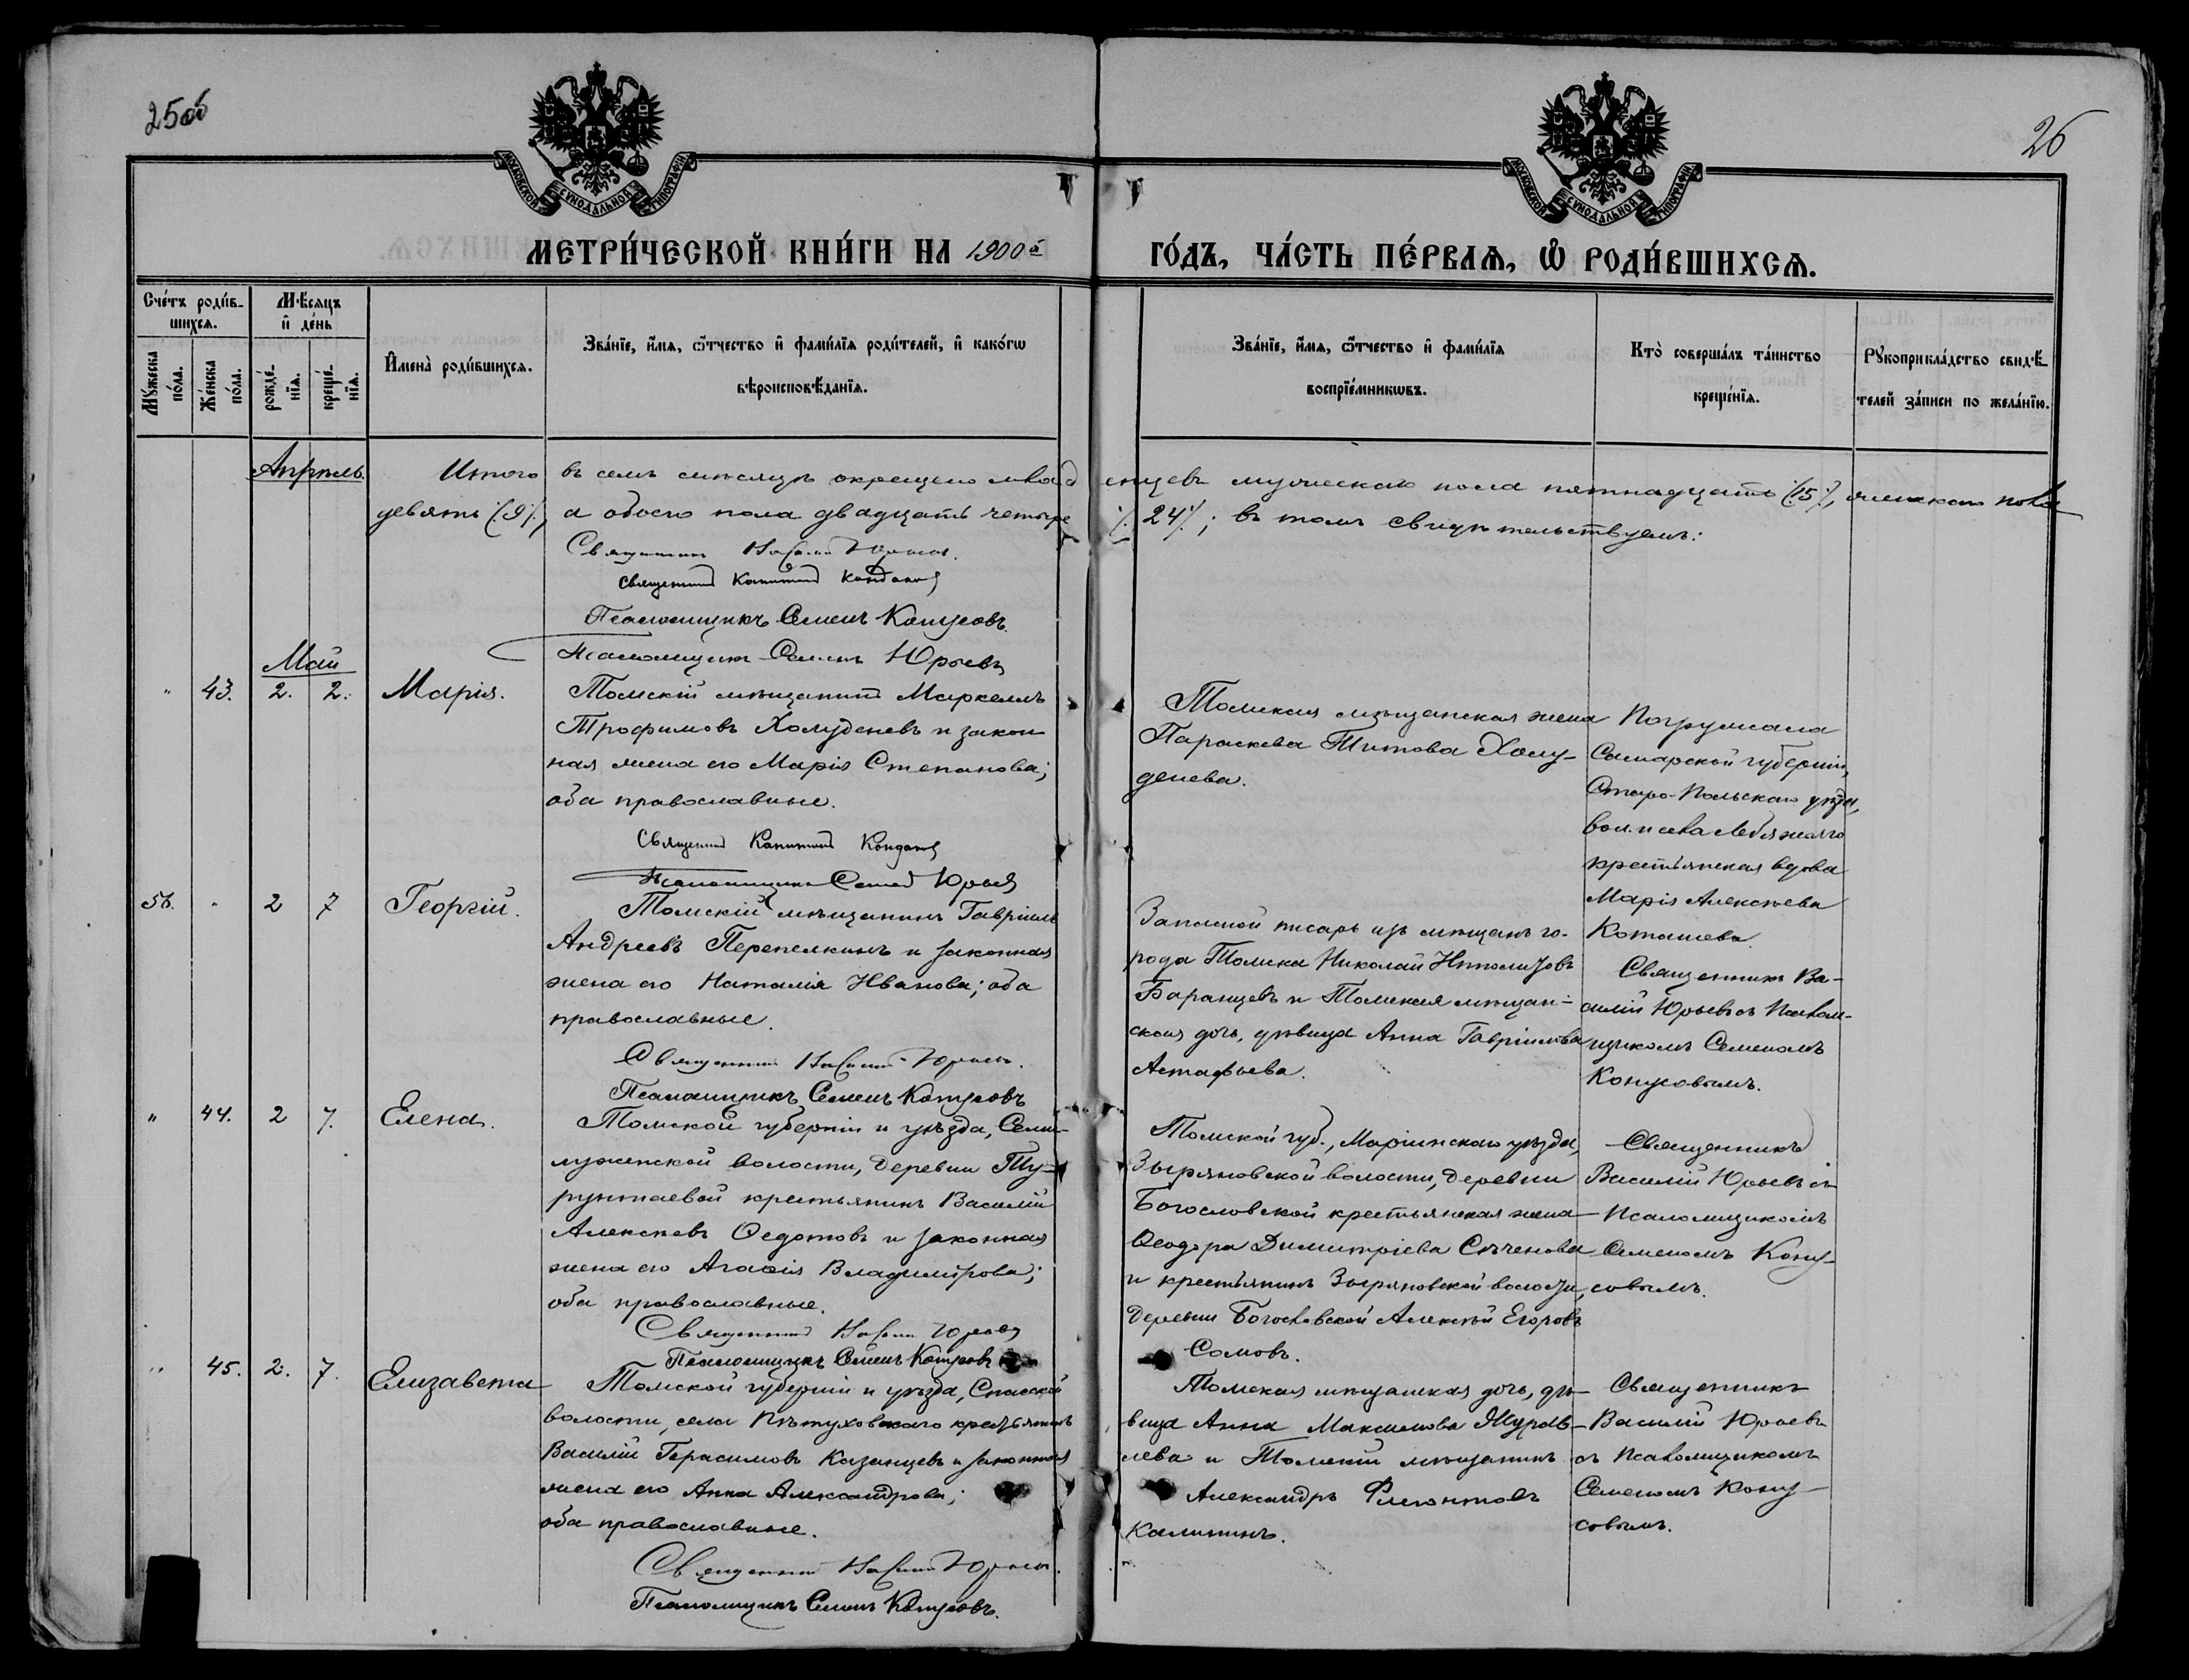 25об
26
МОСКОВСКОЙ СУНОДАЛЬНОЙ ТИПОГРАФІИ
МОСКОВСКОЙ СУНОДАЛЬНОЙ ТИПОГРАФІИ
МЕТРИ́ЧЕСКОЙ КНИ́ГИ НА 1900й ГО́ДЪ, ЧА́СТЬ ПЕ́РВАЯ, Ѡ РОДИ́ВШИХСЯ.
Сче́тъ роди́в-
шихся.
Мѣ́сяцъ
и҆ де́нь
Мꙋ́жеска
по́ла.
Же́нска
по́ла.
рожде́-
нїя.
креще́-
нїя.
И҆мена̀ роди́вшихся.
Зва́нїе, и҆́мя, ѻ҆́тчество и҆ фами́лїя роди́телей, и҆ како́гѡ
вѣроисповѣ́данїя.
Зва́нїе, и҆́мя, ѻ҆́тчество и҆ фами́лїя
воспрїе́мникѡвъ.
Кто̀ соверша́лъ та́инство
креще́нїя.
Рꙋкоприкла́дство свидѣ́-
телей за́писи по жела́нїю.
Апрѣль.
Итого въ семъ мѣсяцѣ окрещено младенцевъ мужескаго пола пятнадцать /15/, женскаго пола
девять /9/, а обоего пола двадцать четыре /24/; въ томъ свидѣтельствуемъ:
Священникъ Василій Юрьевъ.
Священникъ Капитонъ
Псаломщикъ Семенъ Конусовъ.
Псаломщикъ Юрьевъ
Май
" 43. 2. 2. Марія.
Томскій мѣщанинъ Маркеллъ
Трофимовъ Холуденевъ и закон
ная жена его Марія Степанова;
оба православные.
Священникъ Капитонъ
Псаломщикъ Юрьевъ
Томская мѣщанская жена
Параскева Титова Холу-
денева.
Погружала
Самарской губерніи,
уѣзда,
вол. и села Лебяжьяго
крестьянская вдова
Марія Алексѣева
56. " 2 7 Георгій.
Томскій мѣщанинъ Гавріилъ
Андреевъ Перепелкинъ и законная
жена его Наталія Иванова; оба
православные.
Священникъ Василій Юрьевъ.
Псаломщикъ Семенъ Конусовъ
Запасной писарь изъ мѣщанъ го-
рода Томска Николай Ипполитовъ
Баранцевъ и Томская мѣщан-
ская дочь, дѣвица Анна Гавріилова
Астафьева.
Священникъ Ва-
силій Юрьевъ съ Псалом-
щикомъ Семеномъ
Конусовымъ.
" 44. 2 7. Елена.
Томской губерніи и уѣзда, Семи-
лужской волости, деревни Ту-
рунтаевой крестьянинъ Василій
Алексѣевъ Ѳедотовъ и законная
жена его Агаѳія Владимірова;
оба православные.
Священникъ Василій Юрьевъ
Псаломщикъ Семенъ Конусовъ
Томской губ., Маріинскаго уѣзда,
Зыряновской волости, деревни
Богословской крестьянская жена
Ѳеодора Димитріева Сѣченова
и крестьянинъ Зыряновской волости,
деревни Богословской Алексѣй Егоровъ
Сомовъ.
Священникъ
Василій Юрьевъ съ
Псаломщикомъ
Семеномъ Кону-
совымъ.
" 45. 2. 7. Елизавета
Томской губерніи и уѣзда, Спасской
волости, села Пѣтуховскаго крестьянинъ
Василій Герасимовъ Казанцевъ и законная
жена его Анна Александрова;
оба православные.
Священникъ Василій Юрьевъ.
Псаломщикъ Семенъ Конусовъ.
Томская мѣщанская дочь, дѣ-
вица Анна Максимова Журав-
лева и Томскій мѣщанинъ
Александръ Филонтовъ
Калининъ.
Священникъ
Василій Юрьевъ
съ Псаломщикомъ
Семеномъ Кону-
совымъ.